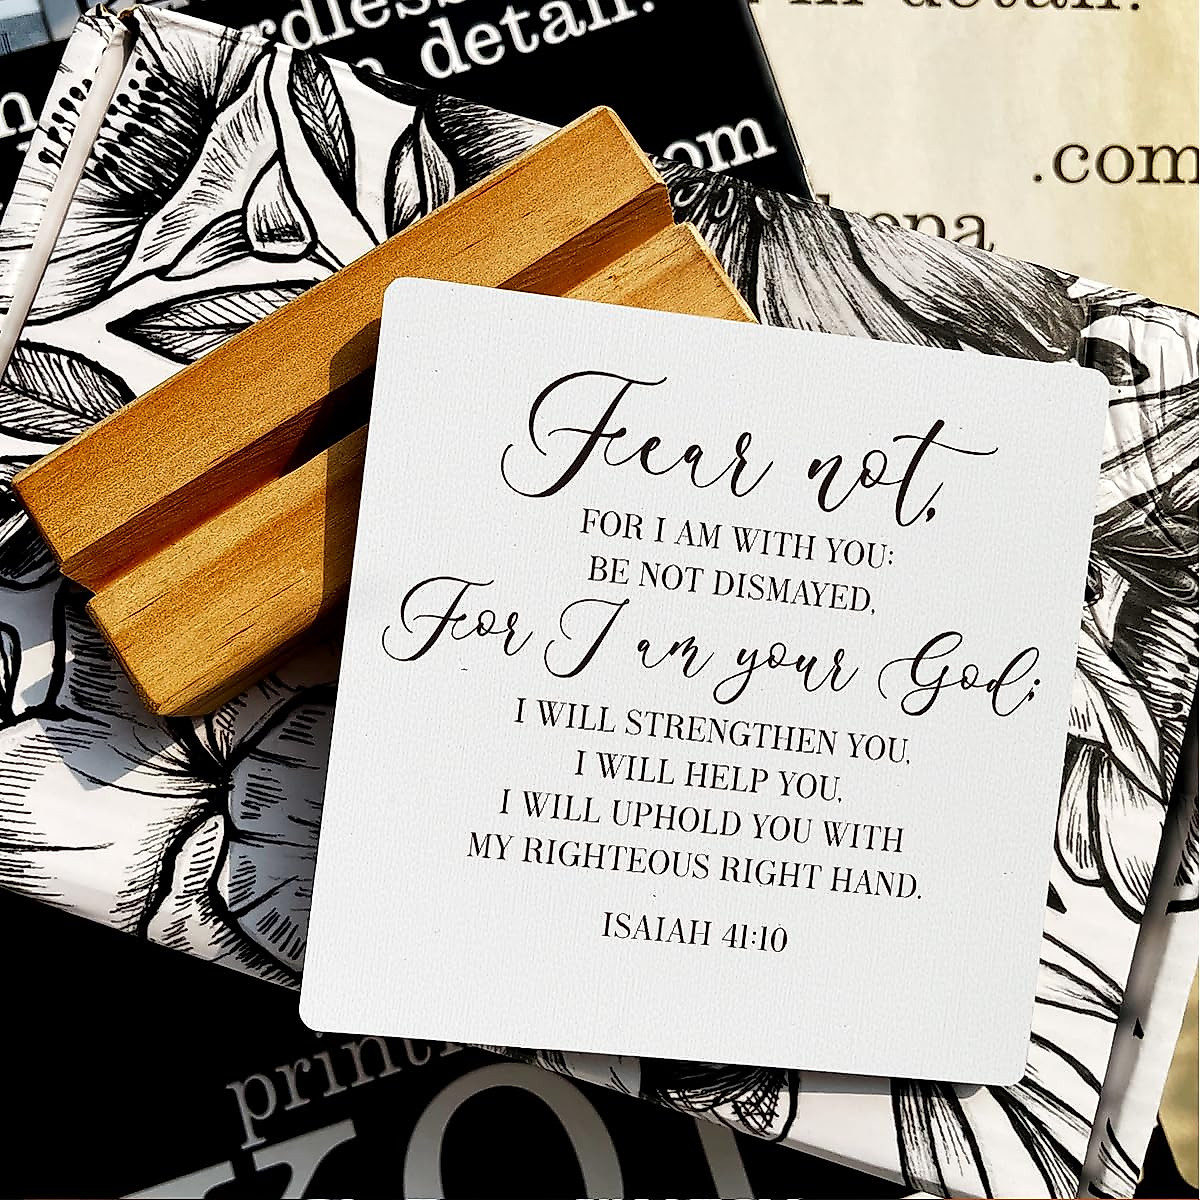 detail.
in detail.
com
.com
Fear not,
FOR I AM WITH YOU;
BE NOT DISMAYED,
For I am your God;
I WILL STRENGTHEN YOU,
I WILL HELP YOU,
I WILL UPHOLD YOU WITH
MY RIGHTEOUS RIGHT HAND.
ISAIAH 41:10